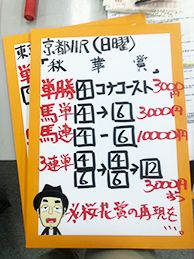 東
京都11R(日曜)
『秋華賞』
単勝 4 コナコースト 3000円
馬単 4→6 3000円
馬連 4-6 10000円
3連単 4 6→4 6→12
3000円
ずつ
※桜花賞の再現を…